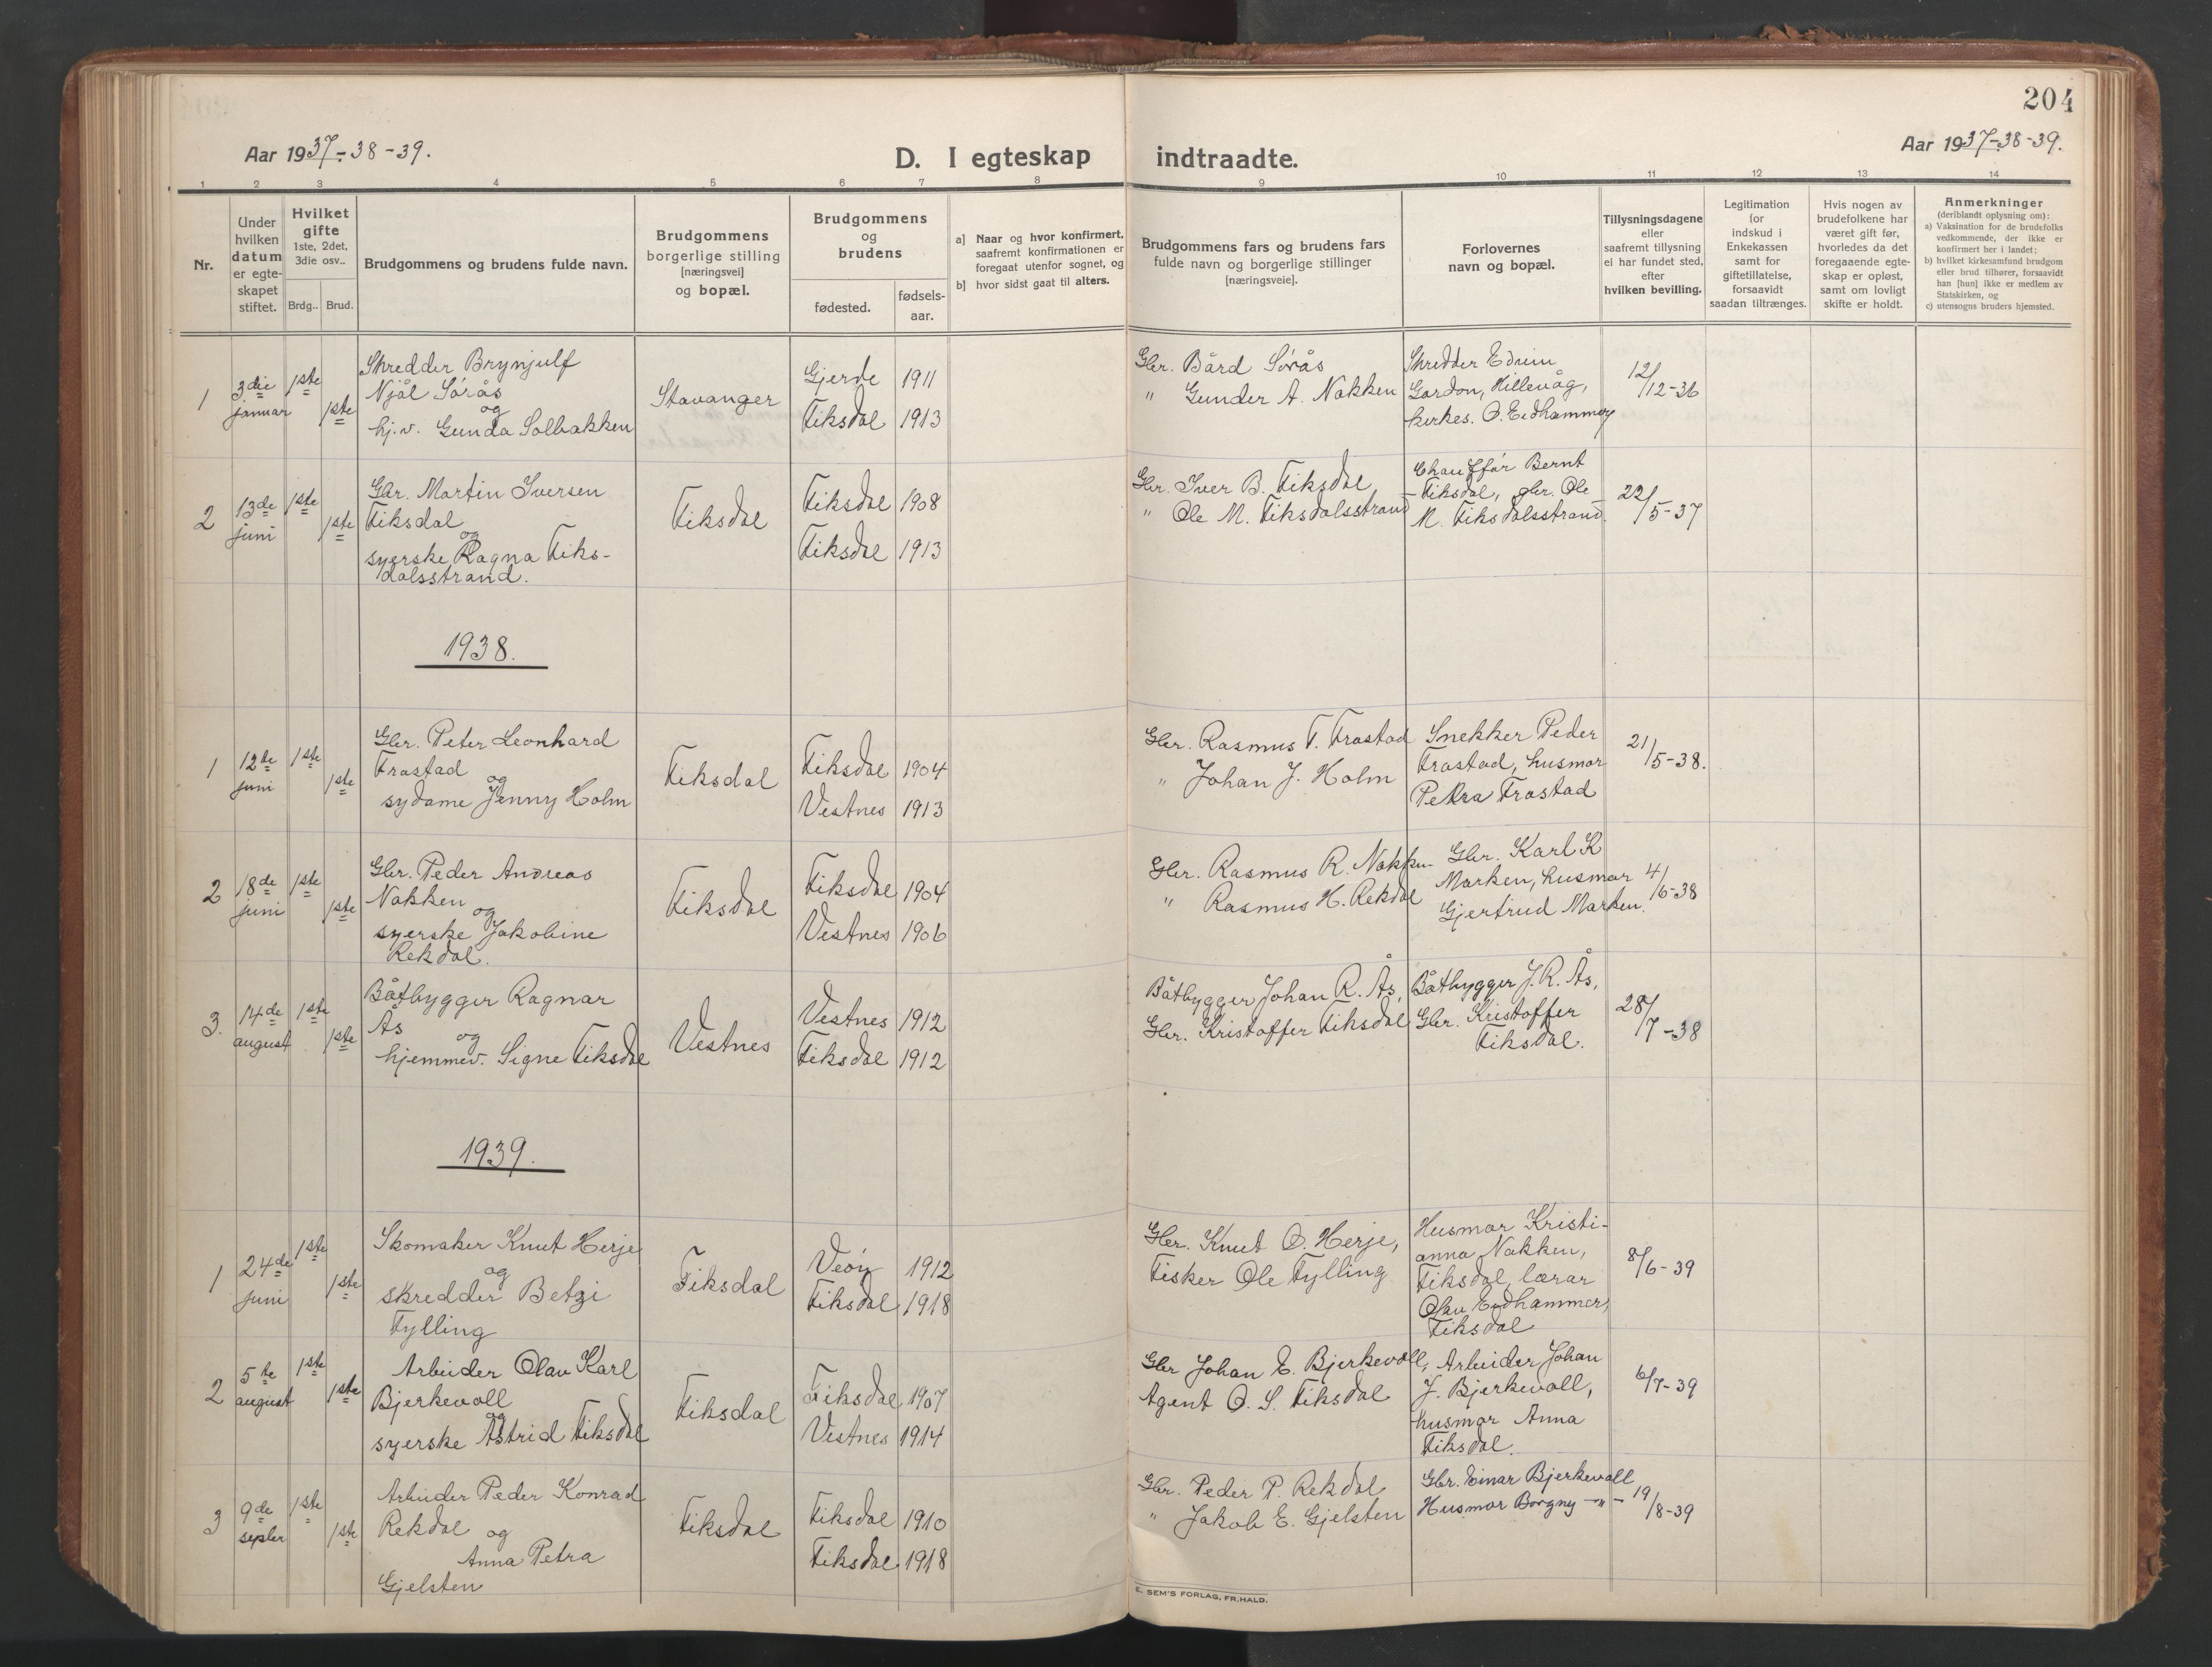 204
Aar 1937-38-39.
D. I egteskap indtraadte.
Aar 1937-38-39.
1 2 3 4 5 6 7 8 9 10 11 12 13 14
Nr.
Under
hvilken
datum
er egte-
skapet
stiftet.
Hvilket
gifte
1ste, 2det,
3die osv..
Brdg.. Brud.
Brudgommens og brudens fulde navn.
Brudgommens
borgerlige stilling
[næringsvei]
og bopæl.
Brudgommens
og
brudens
fødested.
fødsels-
aar.
a] Naar og hvor konfirmert,
saafremt konfirmationen er
foregaat utenfor sognet, og
b] hvor sidst gaat til alters.
Brudgommens fars og brudens fars
fulde navn og borgerlige stillinger
[næringsveie].
Forlovernes
navn og bopæl.
Tillysningsdagene
eller
saafremt tillysning
ei har fundet sted,
efter
hvilken bevilling.
Legitimation
for
indskud i
Enkekassen
samt for
giftetillatelse,
forsaavidt
saadan tiltrænges.
Hvis nogen av
brudefolkene har
været gift før,
hvorledes da det
foregaaende egte-
skap er opløst,
samt om lovligt
skifte er holdt.
Anmerkninger
(deriblandt oplysning om):
a) Vaksination for de brudefolks
vedkommende, der ikke er
konfirmert her i landet;
b) hvilket kirkesamfund brudgom
eller brud tilhører, forsaavidt
han [hun] ikke er medlem av
Statskirken, og
c) utensogns bruders hjemsted.
1
3die
januar
1ste
1ste
Skredder Brynjulf
Njål Sørås
og
hj.v. Gunda Solbakken
Stavanger
Gjerde 1911
Fiksdal 1913
Gbr. Bård Sørås
" Gunder A. Nakken
Skredder Edvin
Gardon, Hillevåg,
kirkes. O. Eidhammer
12/12-36
2
13de
juni
1ste
1ste
Gbr. Martin Iversen
Fiksdal
og
syerske Ragna Fiks-
dalsstrand.
Fiksdal
Fiksdal 1908
Fiksdal 1913
Gbr. Iver B. Fiksdal
" Ole M. Fiksdalsstrand
Chauffør Bernt
Fiksdal, gbr. Ole
M. Fiksdalsstrand.
22/5-37
1938.
1
12te
juni
1ste
1ste
Gbr. Peter Leonhard
Frostad
og
sydame Jenny Holm
Fiksdal
Fiksdal 1904
Vestnes 1913
Gbr. Rasmus T. Frostad
" Johan J. Holm
Snekker Peder
Frostad, husmor
Petra Frostad
21/5-38.
2
18de
juni
1ste
1ste
Gbr. Peder Andreas
Nakken
og
syerske Jakobine
Rekdal.
Fiksdal
Fiksdal 1904
Vestnes 1906
Gbr. Rasmus R. Nakken
" Rasmus H. Rekdal
Gbr. Karl K
Marken, husmor
Gjertrud Marken.
4/6-38
3.
14de
august
1ste
1ste
Båtbygger Ragnar
Ås
og
hjemmev. Signe Fiksdal
Vestnes
Vestnes 1912
Fiksdal 1912
Båtbygger Johan R. Ås,
Gbr. Kristoffer Fiksdal
Båtbygger J. R. Ås,
Gbr. Kristoffer
Fiksdal.
28/7-38
1939.
1
24de
juni
1ste
1ste
Skomaker Knut Herje
og
skredder Betzi
Fylling
Fiksdal
Veøy 1912
Fiksdal 1918
Gbr. Knut O. Herje,
Fisker Ole Fylling
Husmor Kristi-
anna Nakken,
Fiksdal, lærar
Olav Eidhammer,
Fiksdal
8/6-39
2
5te
august
1ste
1ste
Arbeider Olav Karl
Bjerkevoll
og
syerske Astrid Fiksdal
Fiksdal
Fiksdal 1907
Vestnes 1914
Gbr Johan E. Bjerkevoll,
Agent O. S. Fiksdal
Arbeider Johan
J. Bjerkevoll,
husmor Anna
Fiksdal.
6/7-39
3
9de
septbr
1ste
1ste
Arbeider Peder Konrad
Rekdal
og
Anna Petra
Gjelsten
Fiksdal
Fiksdal 1910
Fiksdal 1918
Gbr. Peder P. Rekdal
" Jakob E. Gjelsten
Gbr. Einar Bjerkevoll
Husmor Borgny -"-
19/8-39
E. SEM'S FORLAG, FR.HALD.